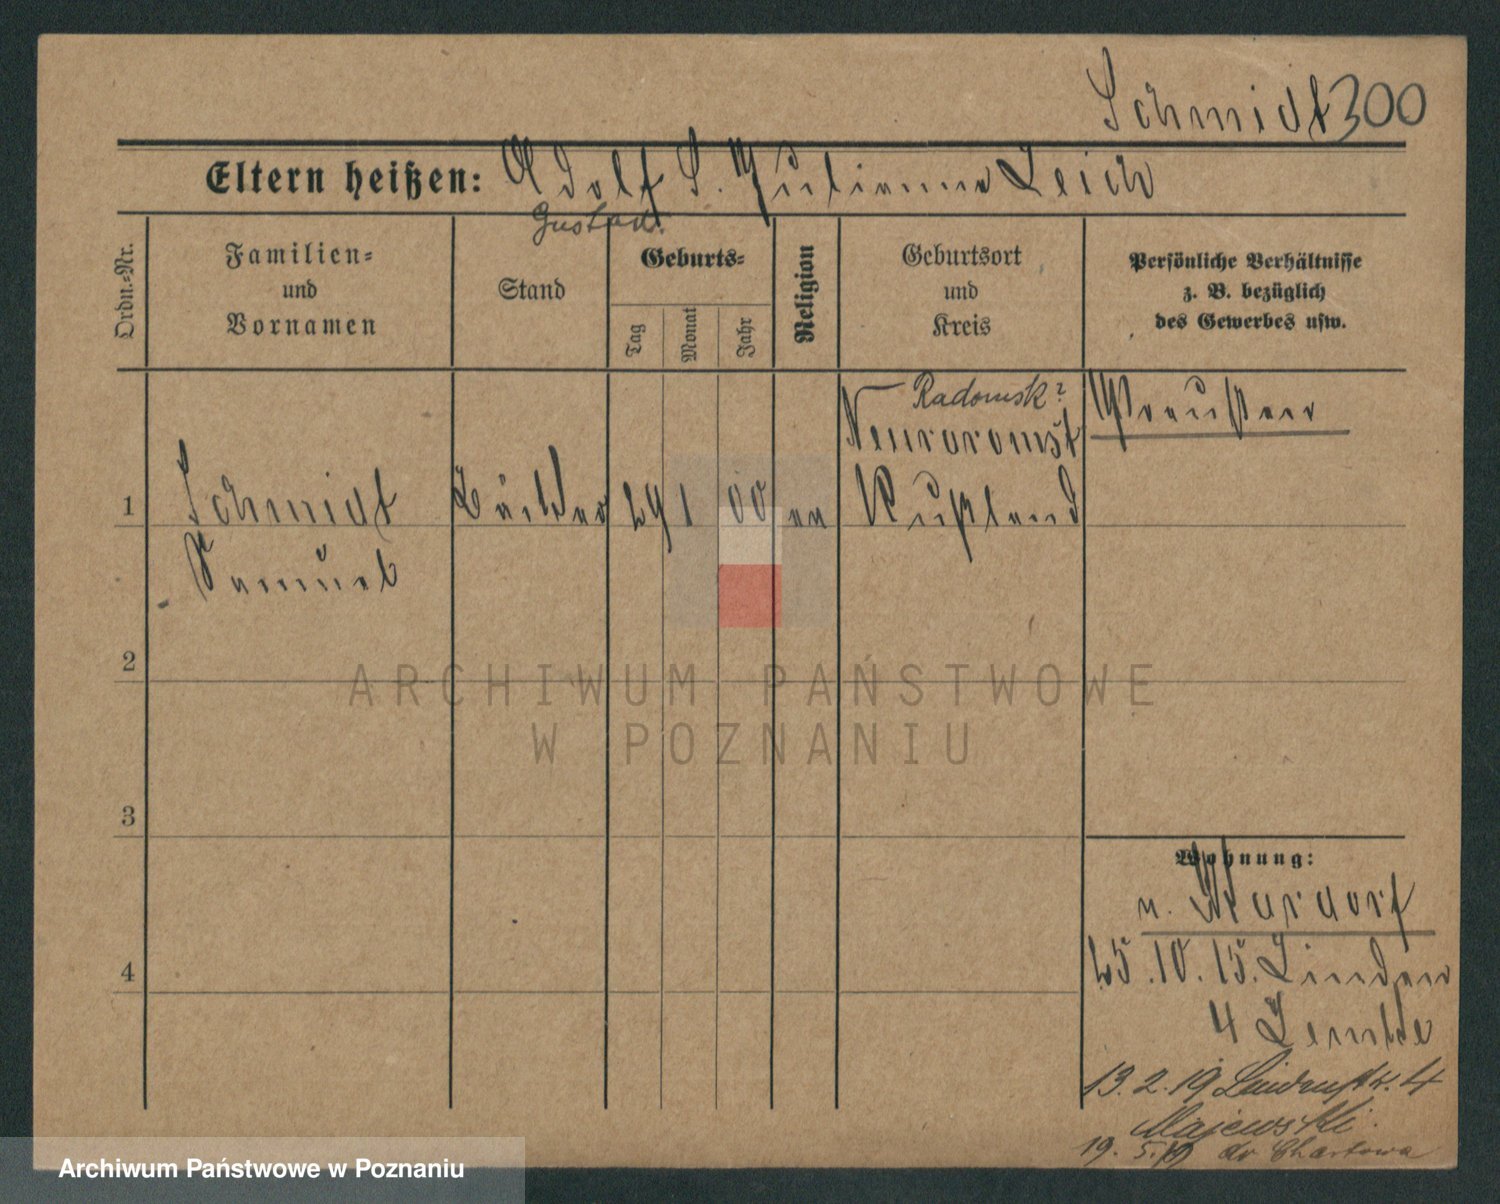 Schmidt 300
Eltern heißen: Adolf S. Julianna Leich
Gustav.
Ordn.-Nr.
Familien- und Vornamen
Stand
Geburts-
Tag
Monat
Jahr
Religion
Geburtsort und Kreis
Persönliche Verhältnisse
z. B. bezüglich
des Gewerbes usw.
Radomsk?
Preußen
1 Schmidt 29 1 00 ev Rußland
Samuel
2
3
4
Wohnung:
n.
25.10.15. Linden
4
13.2.19 Lindenstr. 4
Majewski.
19. 5. 19 Chartowa
ARCHIWUM PAŃSTWOWE
W POZNANIU
Archiwum Państwowe w Poznaniu